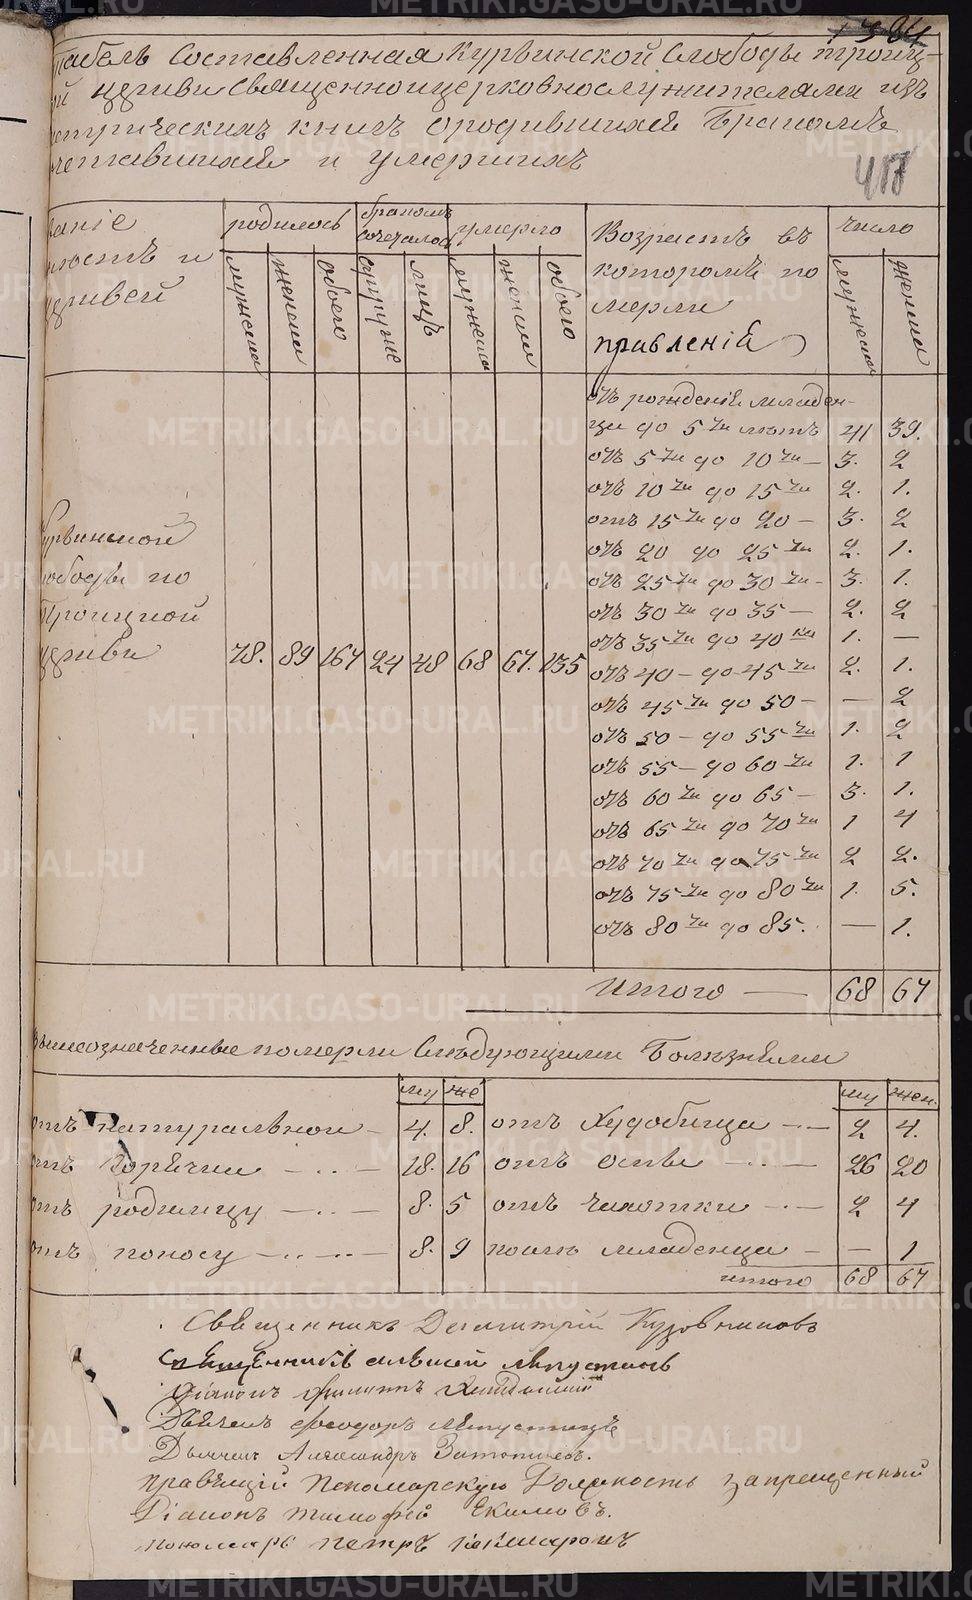 417
Табель составленная Курвинской Слободы троиц-
ой церкви священноицерковнослужителями изъ
метрическихъ книгъ ородившихся Бракомъ
сочетавшихся и умершихъ
родилось
бракомъ сочеталось
умерло
Возрастъ въ
которомъ по
мерли
правленія
число
церквей
мужеска
женска
обоего
супруже
лицъ
мужеска
женска
обоего
мужеска
женска
отъ рожденія младен-
ца до 5 ти лѣтъ 41 39.
отъ 5 ти до 10 ти — 3. 2
отъ 10 ти до 15 ти 2. 1.
отъ 15 ти до 20 — 3. 2
отъ 20 до 25 ти 2. 1.
отъ 25 ти до 30 ти — 3. 1.
отъ 30 ти до 35 — 2. 2
отъ 35 ти до 40 ка 1. —
отъ 40 — до 45 ти 2. 1.
отъ 45 ти до 50 — — 2
отъ 50 — до 55 ти 1. 2
отъ 55 — до 60 ти 1. 1
отъ 60 ти до 65 — 3. 1.
отъ 65 ти до 70 ти 1 4
отъ 70 ти до 75 ти 2 2.
отъ 75 ти до 80 ти 1. 5.
отъ 80 ти до 85. — 1.
Курвинской
слободы по
Троицкой
церкви 78. 89 167 24 48 68 67. 135
Итого — 68 67
Вышеозначенные померли Слѣдующими Болѣзнями
му же му жен.
отъ натуральной — 4. 8. отъ Худобища — 2 4.
отъ горячки — 18. 16 отъ оспы — 26 20
отъ родимцу — 8. 5 отъ чихотки — 2 4
отъ поносу — 8. 9 младенца — — 1
итого 68 67
Священникъ Димитрій Кузовниковъ
Священникъ
Діаконъ
Дьячекъ Феодоръ
Дьячекъ Александръ
правящій Пономарскую Должность запрещенный
Діаконъ тимофей Екимовъ.
пономарь петръ
METRIKI.GASO-URAL.RU